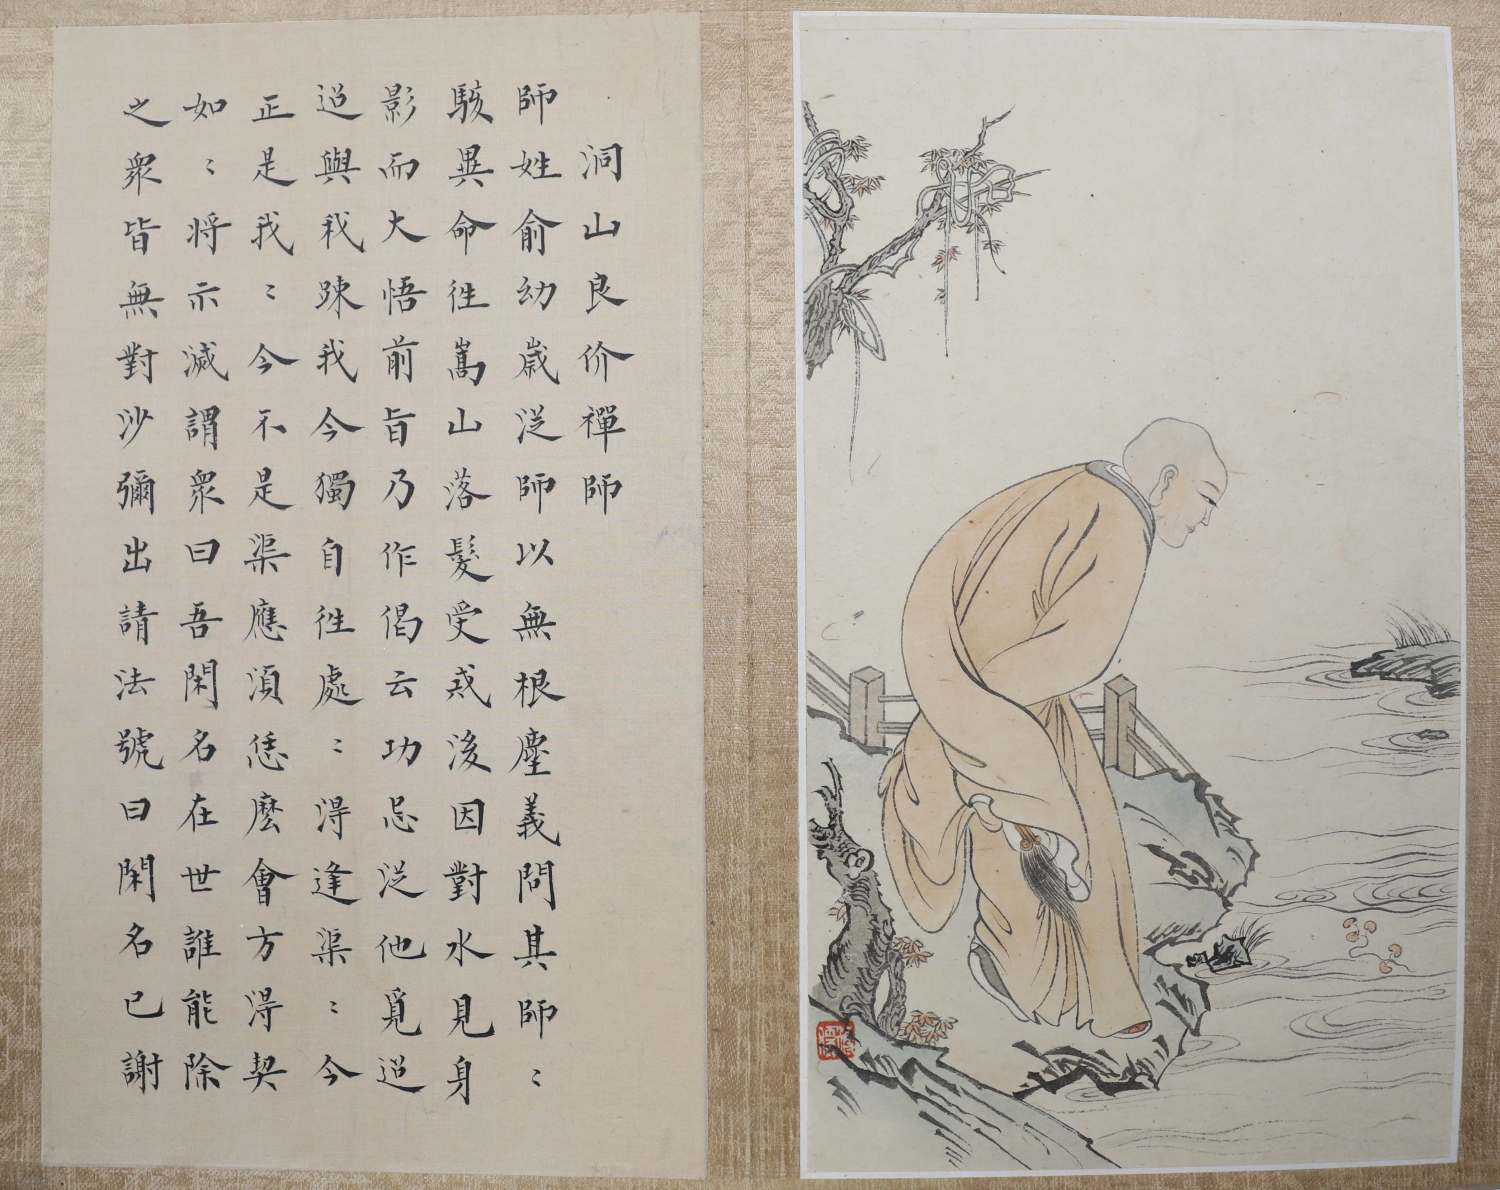 洞山良价禪師
師姓俞幼歲從師以無根塵義問其師〻
駭異命徃嵩山落髮受戒後因對水見身
影而大悟前旨乃作偈云切忌從他覓迢
迢與我踈我今獨自徃處〻得逢渠〻今
正是我〻今不是渠應須恁麽會方得契
如〻將示滅謂眾曰吾閑名在世誰能除
之眾皆無對沙彌出請法號曰閑名已謝